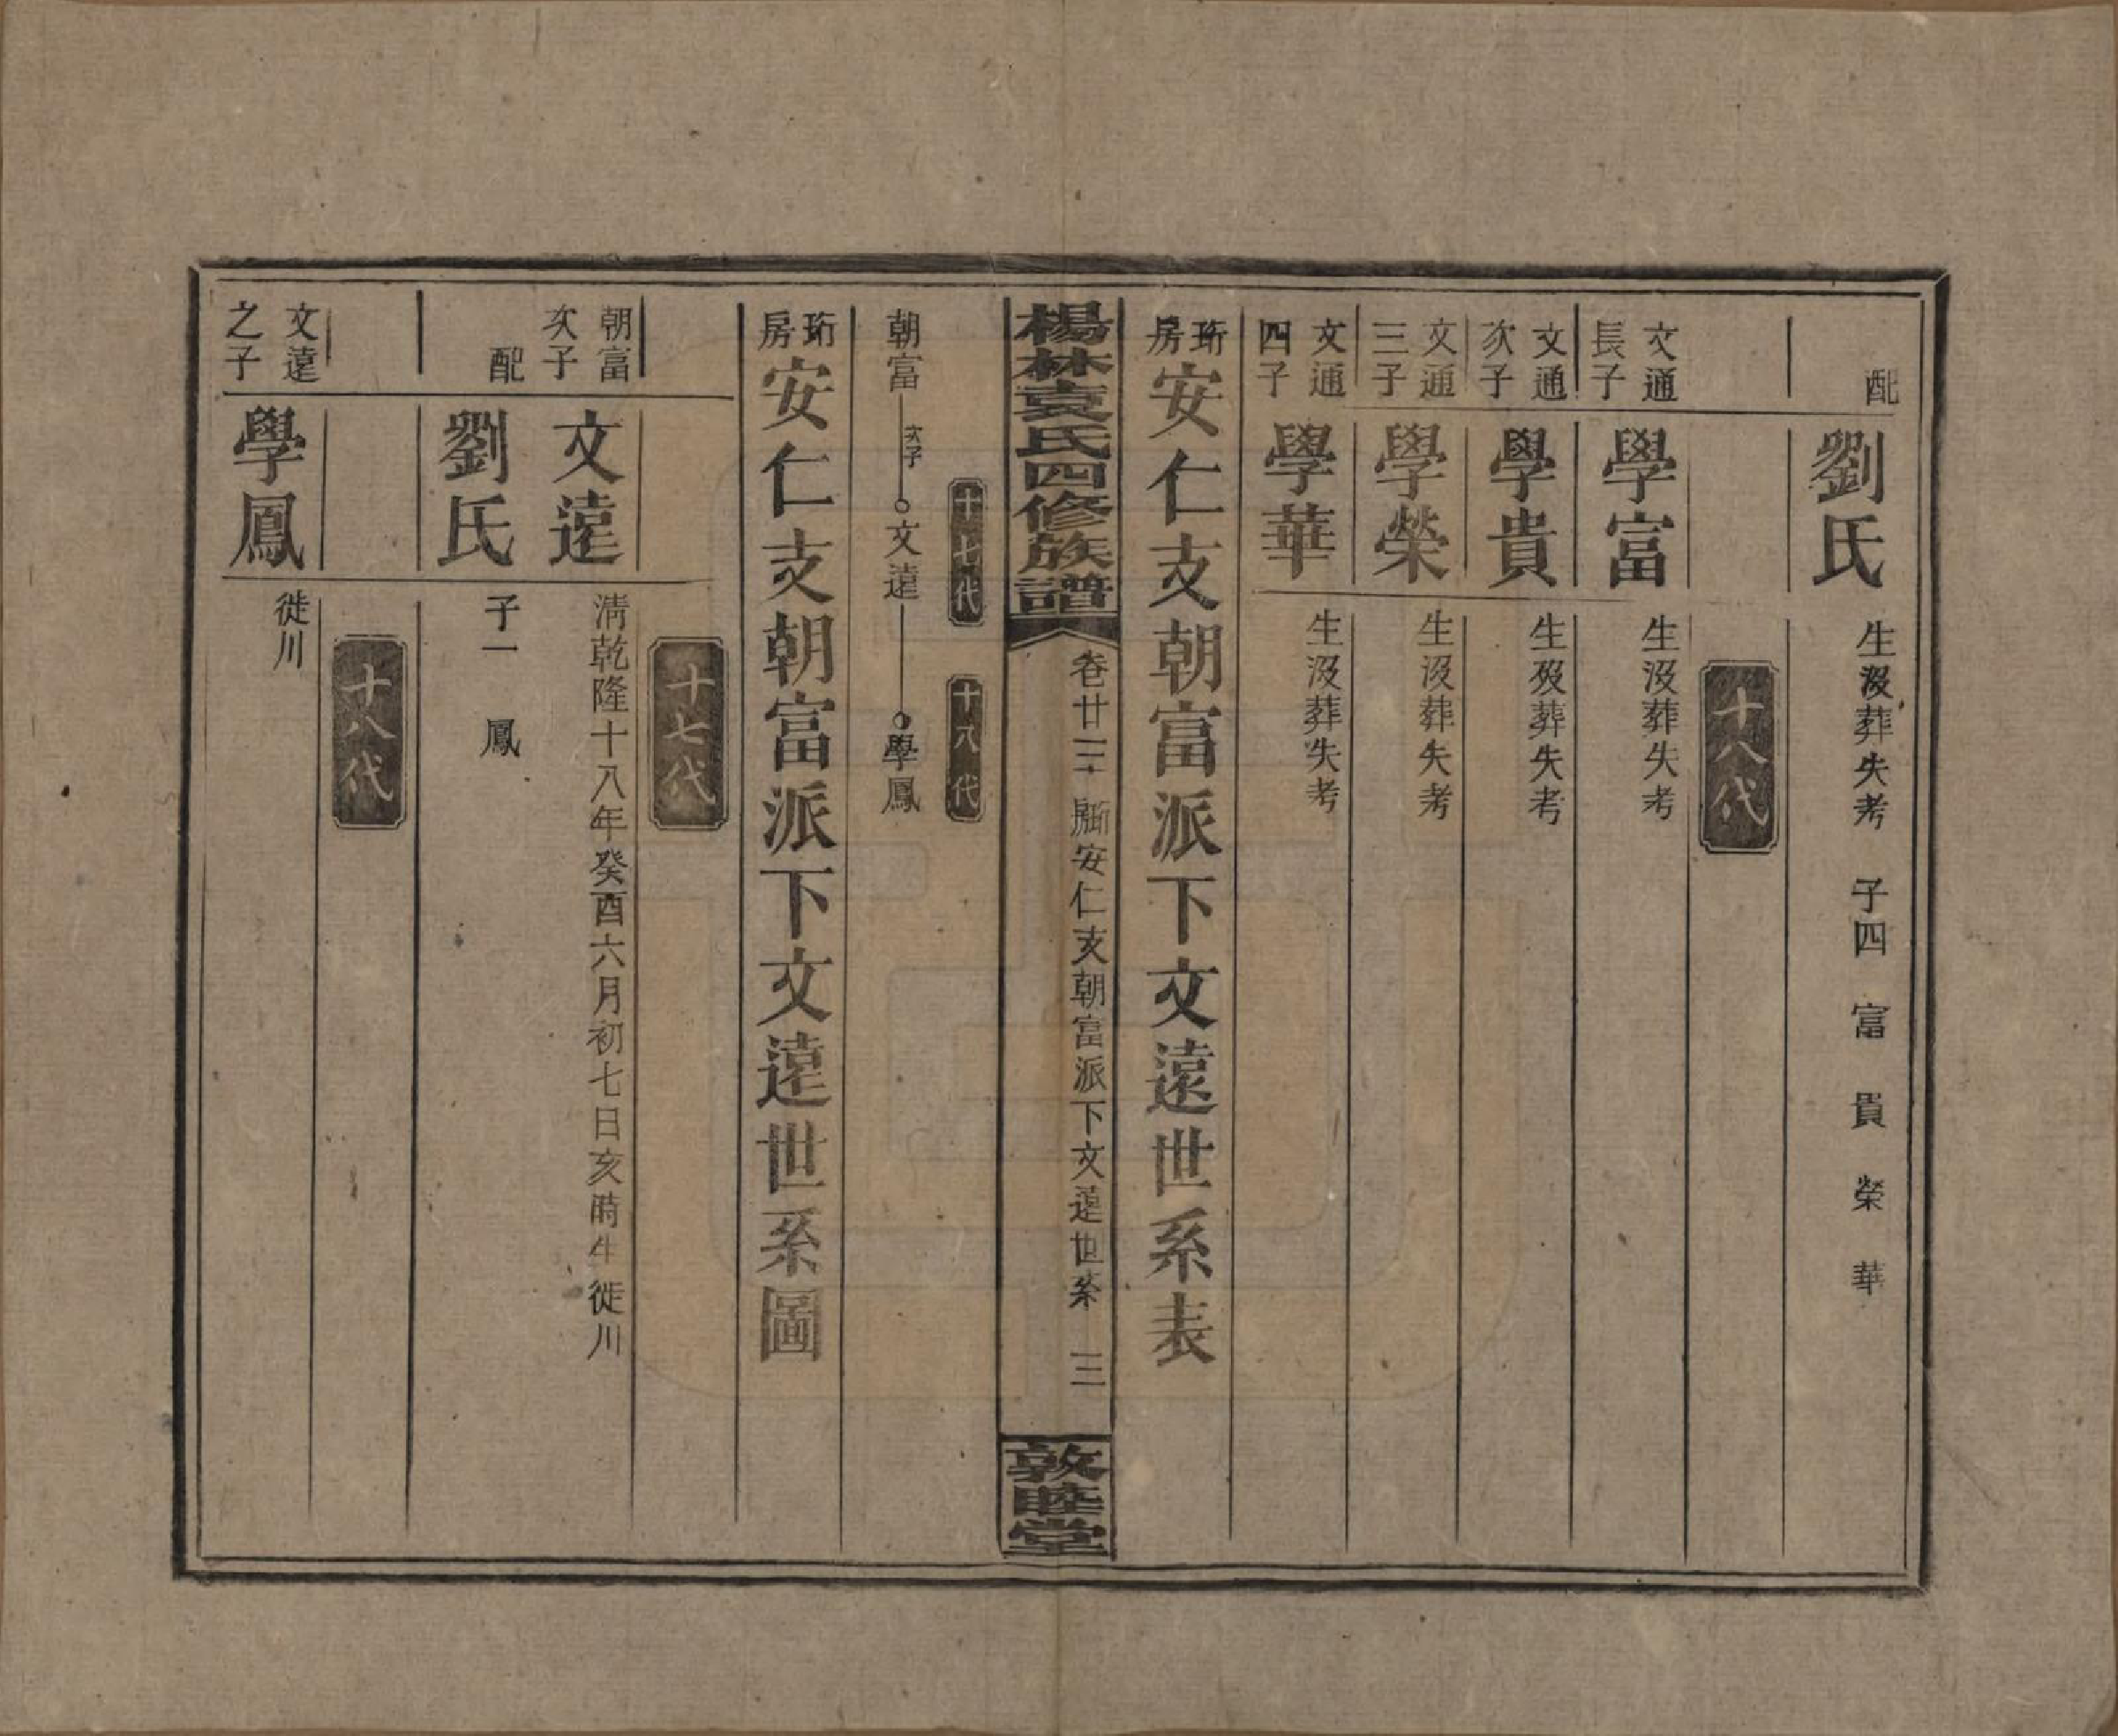 配 劉氏 生沒葬失考 子四 富 貴 榮 華
十八代
文通長子 學富 生沒葬失考
文通次子 學貴 生歿葬失考
文通三子 學榮 生沒葬失考
文通四子 學華 生沒葬失考
房安仁支朝富派下文遠世系表
楊林袁氏四修族譜 卷廿三 安仁支朝富派下文遠世系 三 敦睦堂
十七代 十八代
朝富 次子 文遠 學鳳
房安仁支朝富派下文遠世系圖
十七代
朝富次子 文遠 淸乾隆十八年癸酉六月初七日亥時生徙川
配 劉氏 子一 鳳
十八代
文遠之子 學鳳 徙川